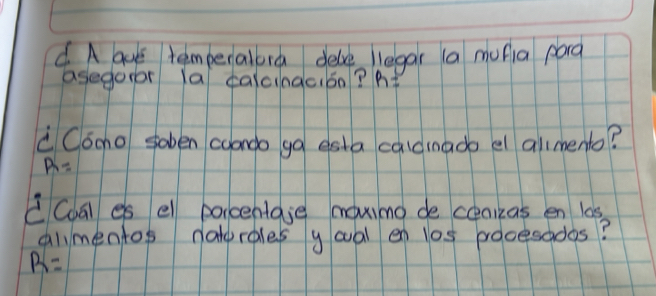 ¿A que temperatura debe llegar la mufla para
asegurar la calcinación? R=
¿Cómo saben cuando ya esta calcinado el alimento?
R=
¿Cuál es el porcentaje maximo de cenizas en los
alimentos naturales y cual en los procesados?
R=